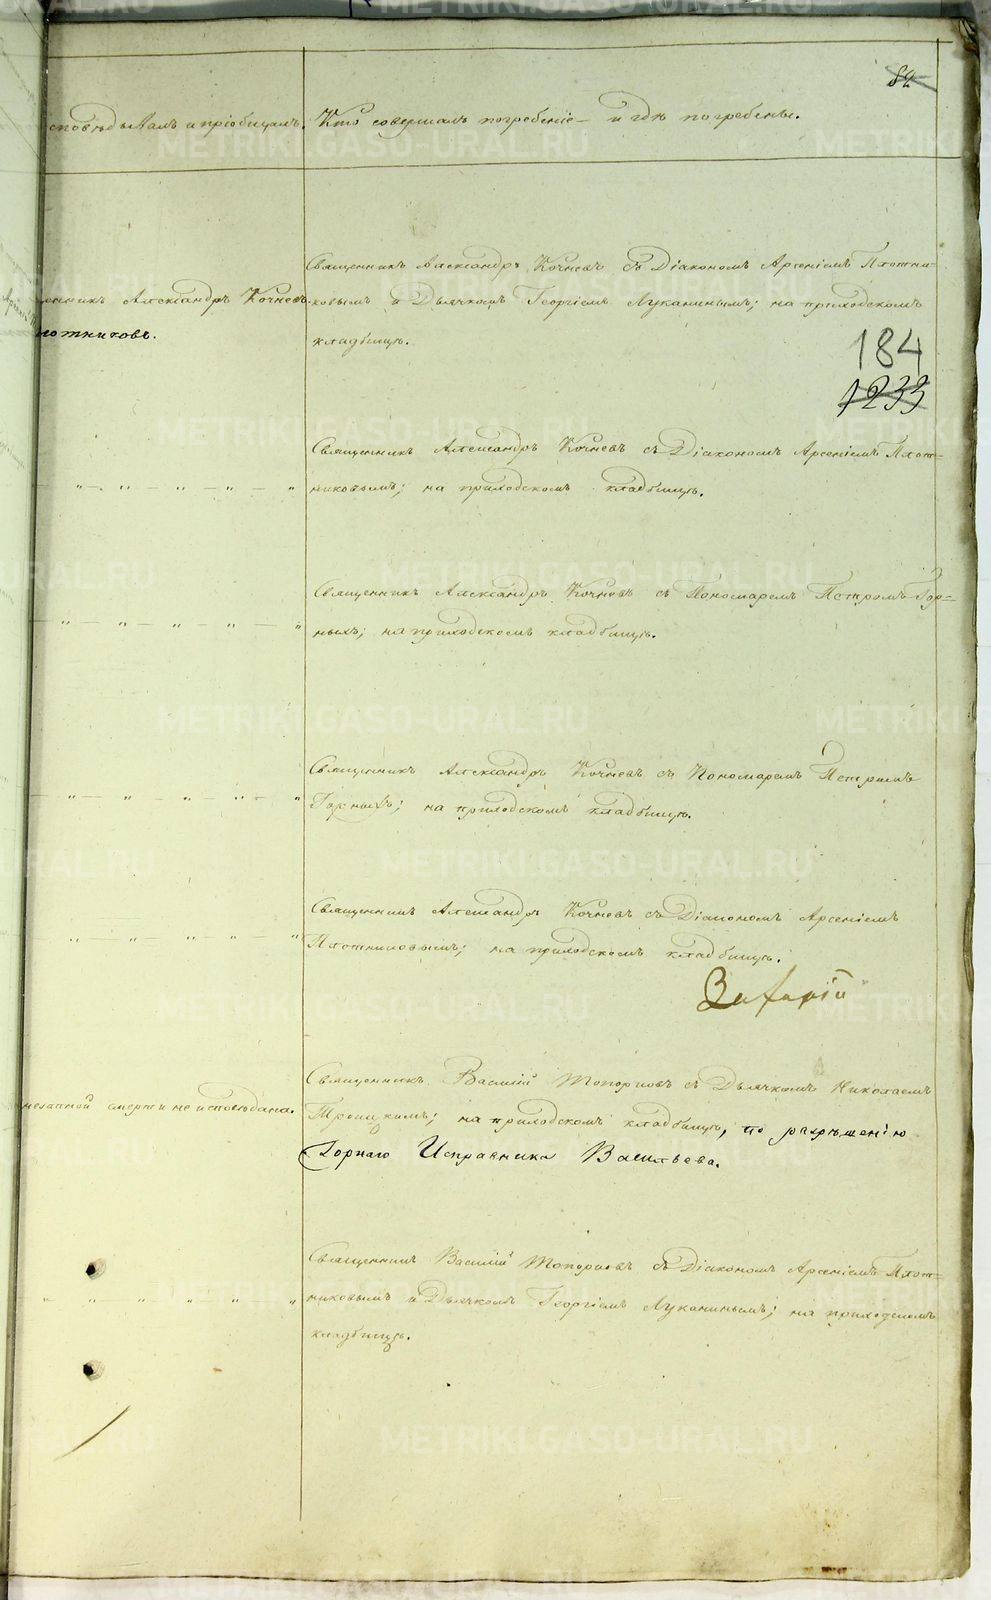 82
исповѣдывалъ и пріобщалъ.
Кто совершалъ погребеніе и гдѣ погребены.
Священникъ Александръ Кочневъ съ Діакономъ Арсеніемъ Плотни-
ковымъ и Дьячкомъ Георгіемъ Луканинымъ; на приходскомъ
кладбищѣ.
енникъ Александръ Кочневъ.
лотниковъ.
184
1233
Священникъ Александръ Кочневъ съ Діакономъ Арсеніемъ Плот-
никовымъ; на приходскомъ кладбищѣ.
— „ — „ — „ — „ — „
Священникъ Александръ Кочневъ съ Пономаремъ Петромъ Гор-
ныхъ; на приходскомъ кладбищѣ.
— „ — „ — „ — „ — „
Священникъ Александръ Кочневъ съ Пономаремъ Петромъ
Горныхъ; на приходскомъ кладбищѣ.
— „ — „ — „ — „ — „
Священникъ Александръ Кочневъ съ Діакономъ Арсеніемъ
Плотниковымъ; на приходскомъ кладбищѣ.
„ — „ — „ „ „
Священникъ Василій Топорковъ съ Дьячкомъ Николаемъ
Троицкимъ; на приходскомъ кладбищѣ, по разрѣшенію
Горнаго Исправника Васильева.
незапной смерти не исповѣдана.
Священникъ Василій Топорковъ съ Діакономъ Арсеніемъ Плот-
никовымъ и Дьячкомъ Георгіемъ Луканинымъ; на приходскомъ
кладбищѣ.
„ „ „ „ „ „
METRIKI.GASO-URAL.RU